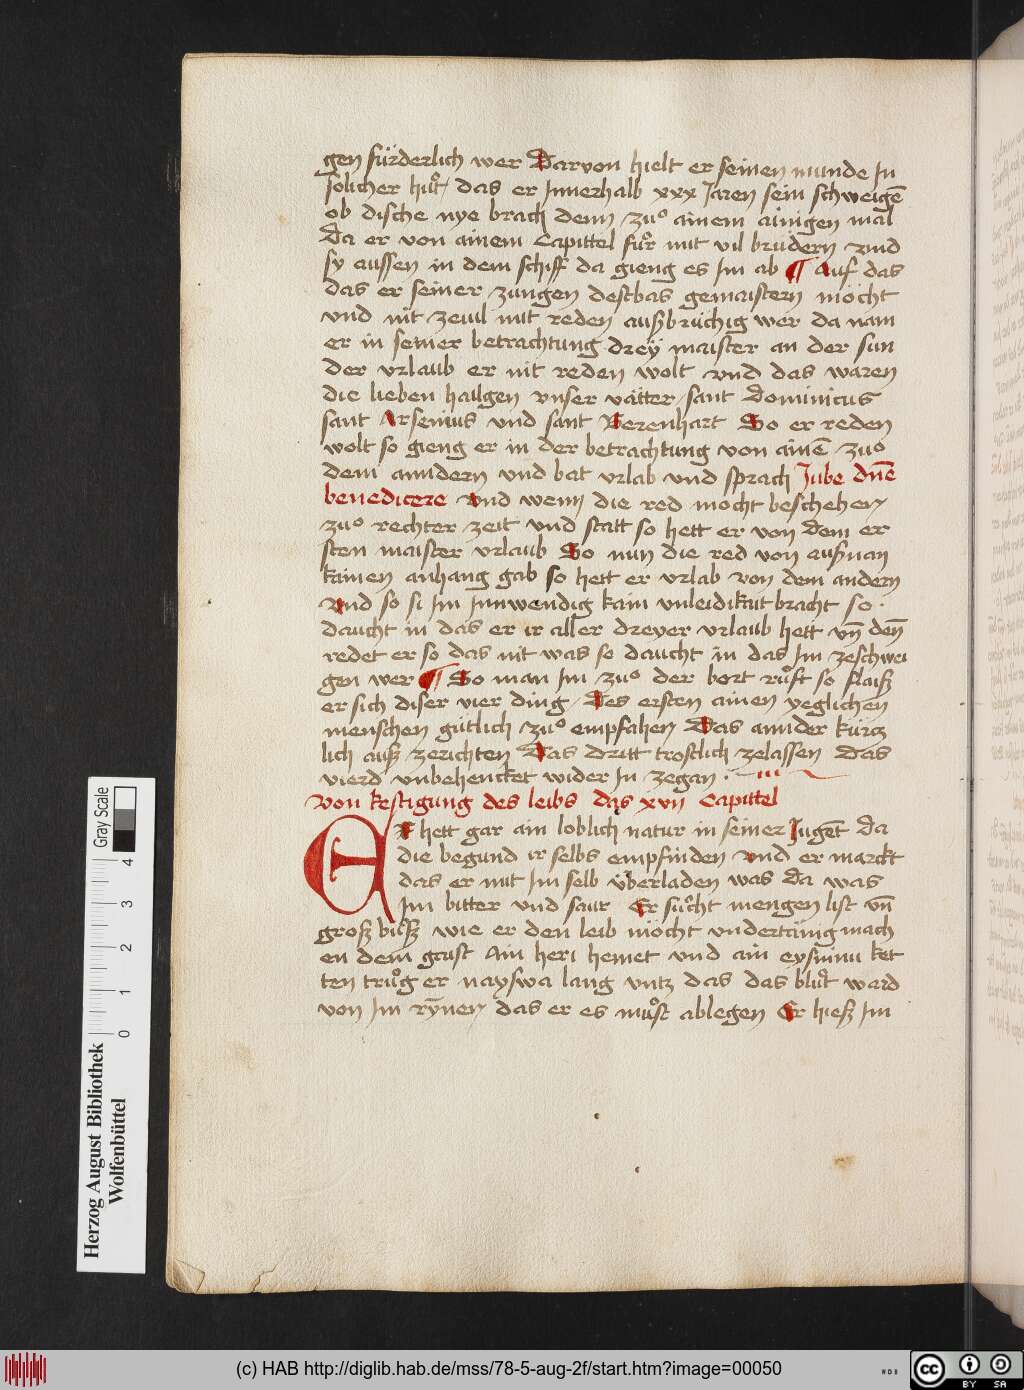 gen fürderlich wer Darvon hielt er seinen munde In
solicher hůt / das er Innerhalb xxx Jaren sein schweigē
ob dische nye brach denn zuͦ ainem ainigen mal
Da er von ainem Capittel fůr mit vil brüdern vnd
sy aussen in dem schiff da gieng es im ab ¶ Auf das
das er seiner zungen destbas gemaistern möcht
vnd nit zeuil mit reden außbrüchig wer da nam
er in seiner betrachtung dreÿ maister an der sun
der vrlaub er nit reden wolt vnd das waren
die lieben hailgen vnser vätter / sant Dominicus
sant Arsenius vnd sant Berenhart So er reden
wolt so gieng er in der betrachtung von ainē zuͦ
dem anndern vnd bat vrlab vnd sprach Jube dn̄e
benedicere vnd wenn die red mocht beschehen
zuͦ rechter zeit vnd statt so hett er von dem er
sten maister vrlaub So nun die red von außnan
kainen anhang gab so hett er vrlab von dem andern
vnd so si Im Innwendig kain vnleidikait bracht so
daucht in das er ir aller dreyer vrlaub hett vn̄ den̄
redet er so das nit was so daucht in das Im zeschwei
gen wer ¶ So man Im zuͦ der bort růft so flaiß
er sich diser vier ding / Des ersten ainen yeglichen
menschen gütlich zuͦ empfahen Das annder kürcz
lich auß zerichten Das dritt trostlich zelassen Das
vierd vnbehencket wider In zegan .
Von kestigung des leibs das xvii Capittel
ER hett gar ain loblich natur in seiner Jugēt da
die begund ir selbs empfinden vnd er marckt
das er mit Im selb überladen was da was
Im bitter vnd saur Er sůcht mengen list vn̄
groß bůß wie er den leib möcht vndertänig mach
en dem gaist Ain heri hemet vnd ain eysinnu ket
ten trůg er nayswa lang vntz das das blůt ward
von Im rÿnen das er es můst ablegen Er hieß Im
Herzog August Bibliothek
Wolfenbüttel
Gray Scale
0 1 2 3 4
(c) HAB http://diglib.hab.de/mss/78-5-aug-2f/start.htm?image=00050
WDB
cc BY SA